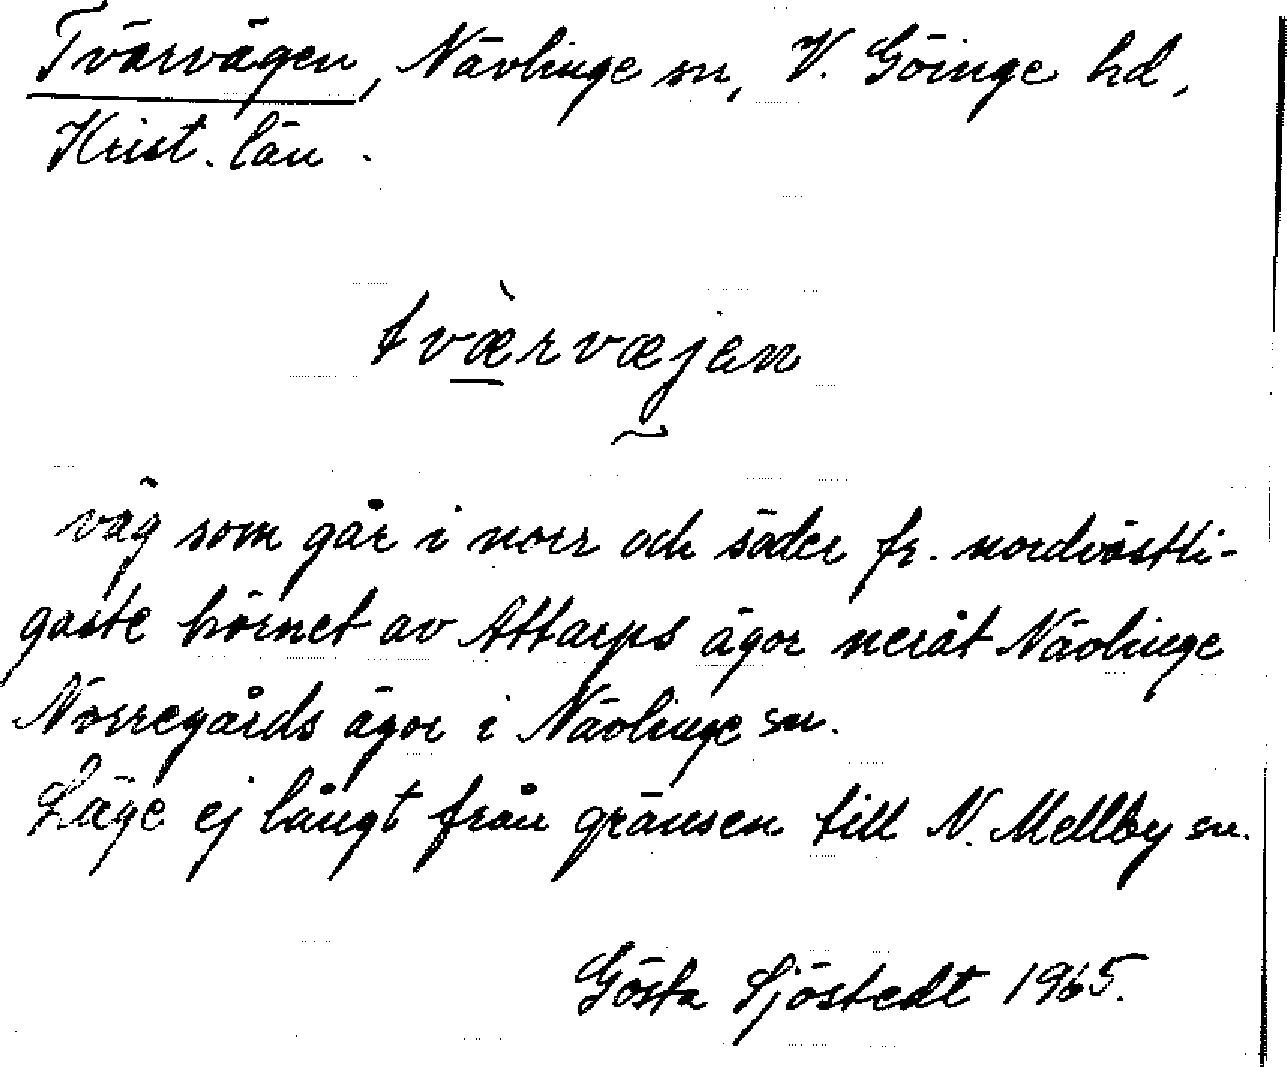 Tvärvägen, Nävlinge sn, V. Göinge hd,
Krist. län.
tvæ̀rvæjen
väg som går i norr och söder fr. nordvästli-
gaste hörnet av Attarps ägor neråt Nävlinge
Norregårds ägor i Nävlinge sn.
Läge ej långt från gränsen till N. Mellby sn.
Gösta Sjöstedt 1965.